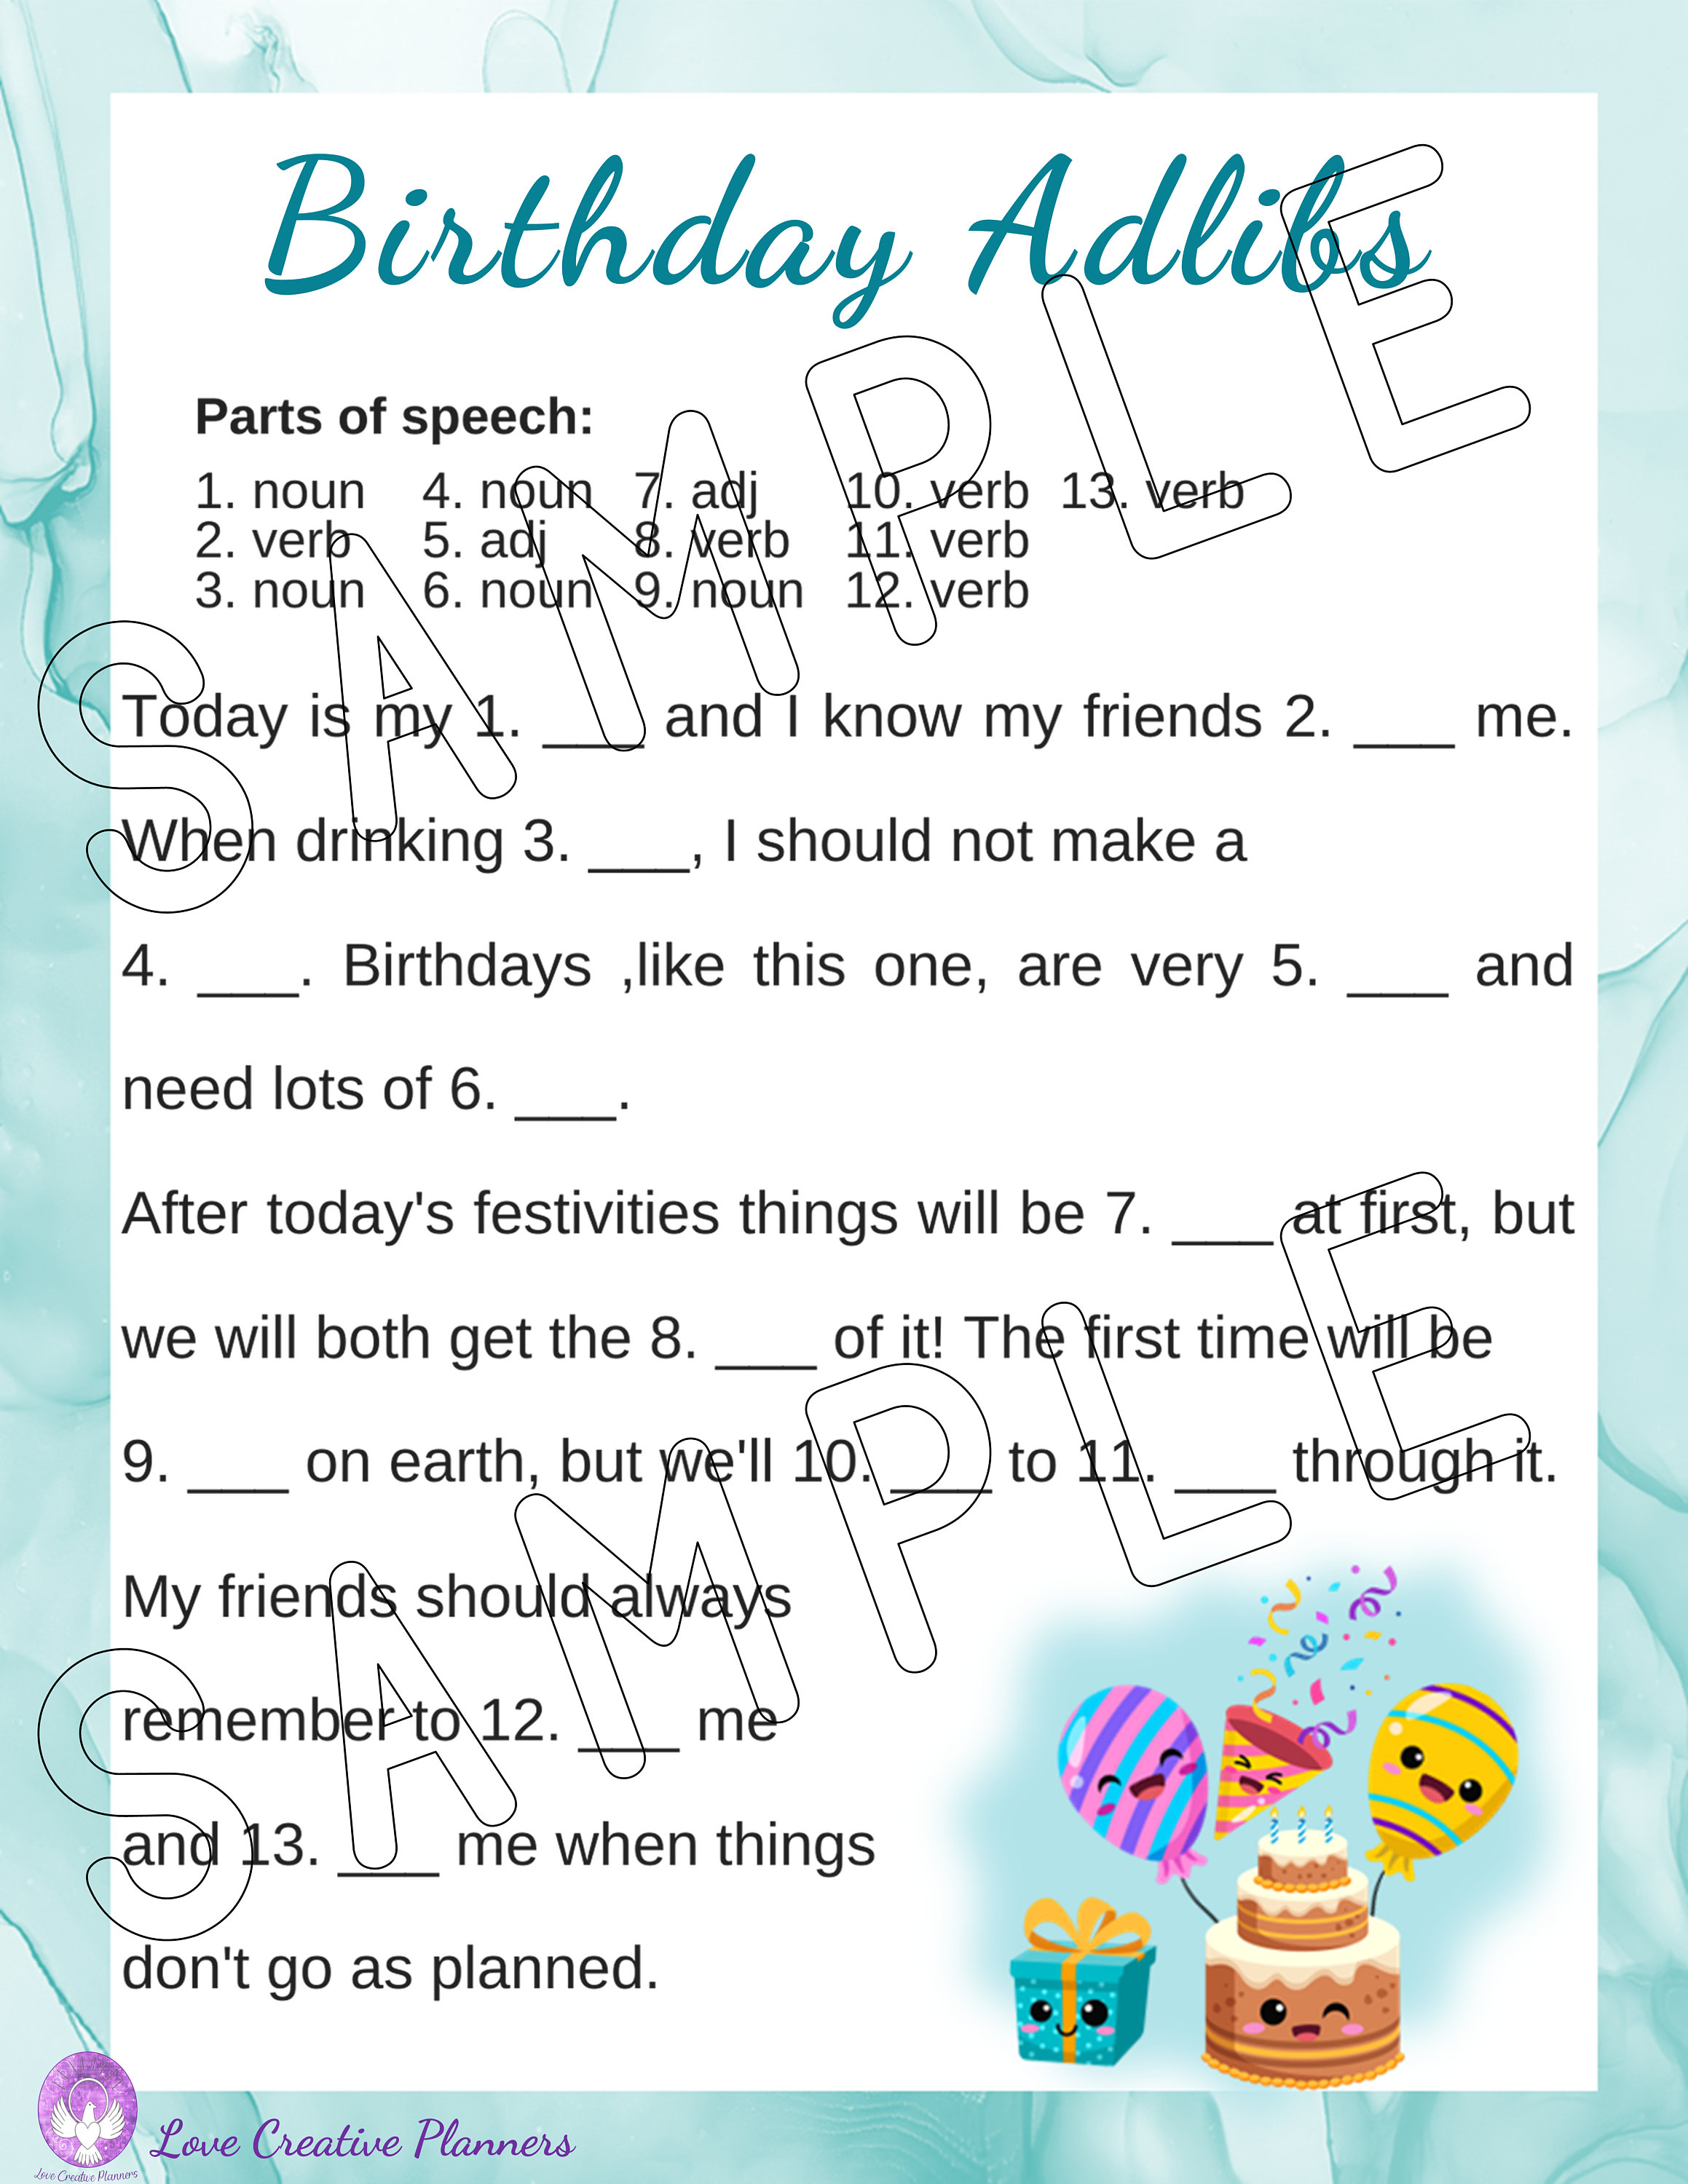 Birthday Adlibs
Parts of speech:
1. noun 4. noun 7. adj 10. verb 13. verb
2. verb 5. adj 8. verb 11. verb
3. noun 6. noun 9. noun 12. verb
SAMPLE
Today is my 1. ___ and I know my friends 2. ___ me.
When drinking 3. ___, I should not make a
4. ___. Birthdays ,like this one, are very 5. ___ and
need lots of 6. ___.
After today's festivities things will be 7. ___ at first, but
we will both get the 8. ___ of it! The first time will be
9. ___ on earth, but we'll 10. ___ to 11. ___ through it.
SAMPLE
My friends should always
remember to 12. ___ me
and 13. ___ me when things
don't go as planned.
Love Creative Planners
Love Creative Planners